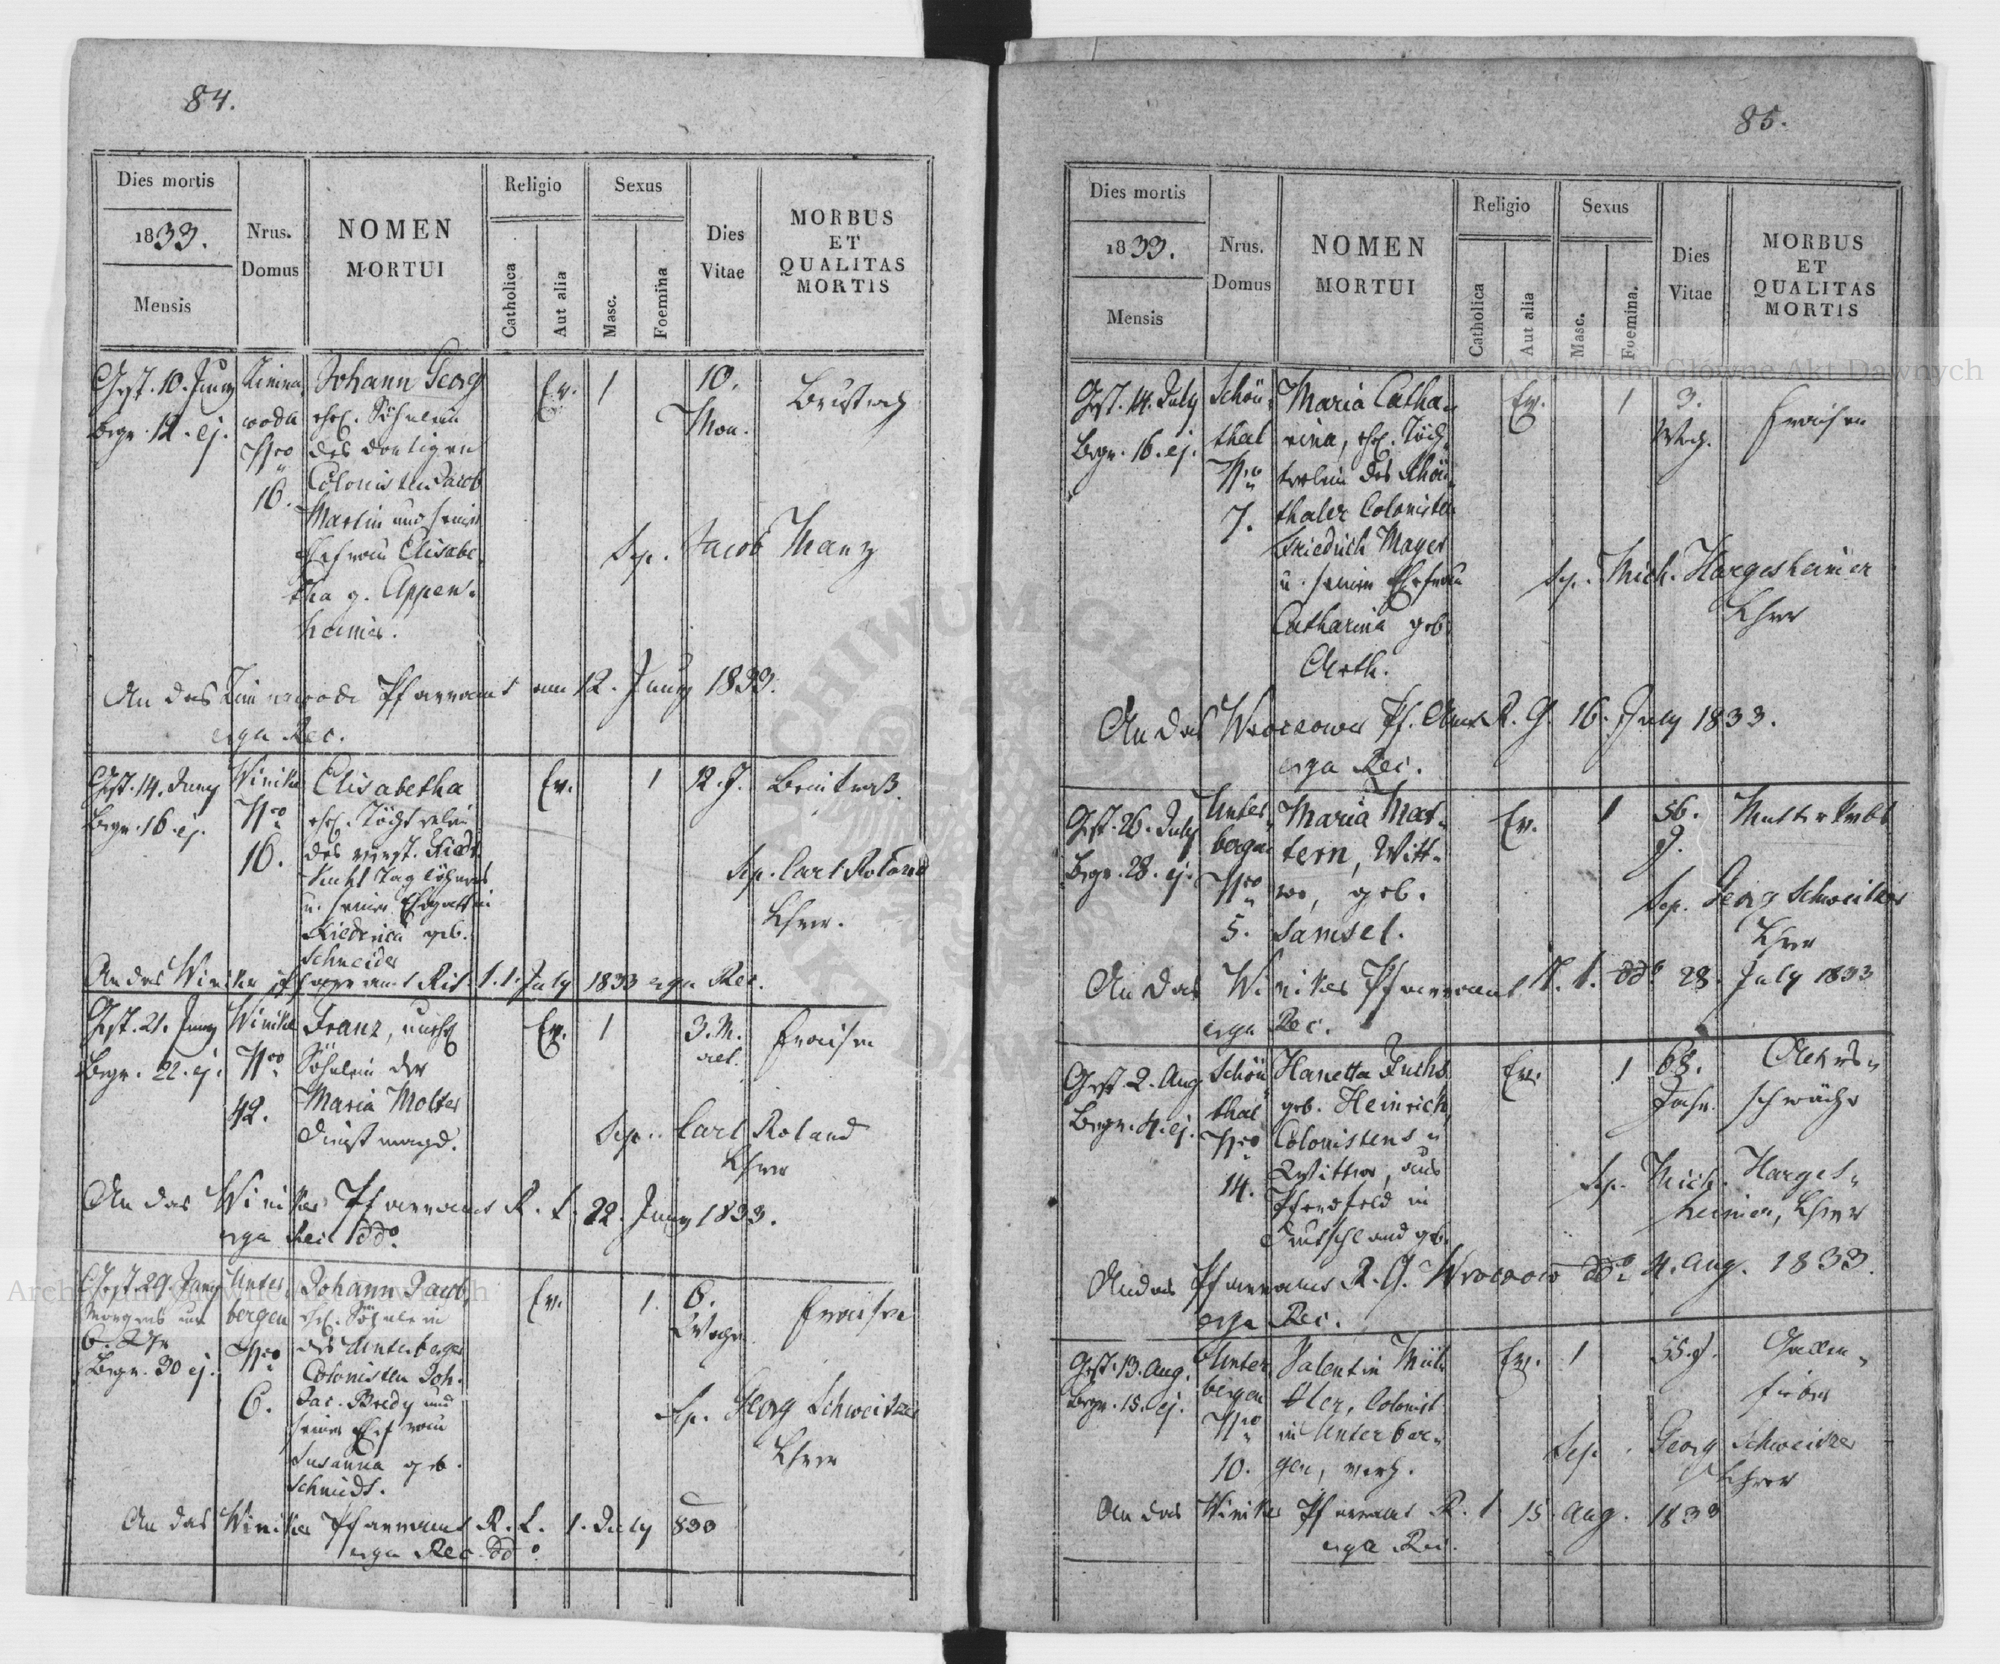 84.
Dies mortis
1833.
Mensis
Nrus.
Domus
NOMEN
MORTUI
Religio
Catholica
Aut alia
Sexus
Masc.
Foemina
Dies
Vitae
MORBUS
ET
QUALITAS
MORTIS
Gest. 10. Juny
Begr. 12. ej.
Nro
16.
Johann Georg
ehel. Söhnlein
des dortigen
Colonisten Jacob
Martin und seiner
Ehefrau Elisabe-
tha g. Appen-
heimer.
Ev.
1
10.
Mon.
Sep. Jacob Manz
An das Pfarramt am 12. Juny 1833.
erga Rec.
Gest. 14. Juny
Begr. 16 ej.
Winike
Nro
16.
Elisabetha
ehel. Töchterlein
des verst.
Taglöhners
u. seiner Ehegattin
Friederica geb.
Schneider
Ev.
1
12. J.
Sep. Carl Roland
Lehrer.
An das Winiker Pfarramt Rit. l. 1. July 1833 erga Rec.
Gest. 21. Juny
Begr. 22. ej.
Winike
Nro
42.
Franz, unehel
Söhnlein der
Maria Molter
Dienstmagd.
Ev.
1
3. M.
alt.
Fraisen
Sep. Carl Roland
Lehrer
An das Winiker Pfarramt R. L. 22. Juny 1833.
erga Rec. ddo.
Gest. 29. Juny
Morgens um
6. Uhr
Begr. 30 ej.
Unter
bergen
Nro
6.
Johann Jacob,
ehel. Söhnlein
des Unterberger
Colonisten Joh.
Jac. Bredy und
seiner Ehefrau
Susanna geb.
Schmidt.
Ev.
1.
6.
Woch.
Fraisen
Sep. Georg Schweitzer
Lehrer
An das Winiker Pfarramt R. L. 1. July 833
erga Rec. ddo.
85.
Dies mortis
1833.
Mensis
Nrus.
Domus
NOMEN
MORTUI
Religio
Catholica
Aut alia
Sexus
Masc.
Foemina.
Dies
Vitae
MORBUS
ET
QUALITAS
MORTIS
Gest. 14. July
Begr. 16. ej.
Schön-
thal
Nro
7.
Maria Catha-
rina, ehel. Töch-
terlein des Schön-
thaler Colonisten
Friedrich Mayer
u. seiner Ehefrau
Catharina geb.
Ev.
1
3.
Woch.
Fraisen
Sep. Mich. Hargesheimer
Lehrer
An das Wrocower Pf. Amt R. G. 16. July 1833.
erga Rec.
Gest. 26. July
Begr. 28. ej.
Unter-
bergen
Nro
5.
Maria Mar-
tern, Witt-
we, geb.
Samsel.
Ev.
1
56.
J.
Mutterkrebs
Sep. Georg Schweitzer
Lehrer
An das Winiker Pfarramt R. l. ddo 28. July 1833
erga Rec.
Gest. 2. Aug
Begr. 4. ej.
Schön
thal
Nro
14.
Hanetta Fuchs
geb. Heinrich,
Colonistens-
Wittwe, aus
Pferdsfeld in
Deutschland geb.
Ev.
1
68.
Jahr.
Alters-
schwäche
Sep. Mich. Harges-
heimer, Lehrer
An das Pfarramt R. G. Wrocow ddo 4. Aug. 1833.
erga Rec.
Gest. 13. Aug.
Begr. 15. ej.
Unter-
bergen
Nro
10.
Valentin Mül-
ler, Colonist
in Unterber-
gen, verh.
Ev.
1
55. J.
Gallen-
fieber
Sep. Georg Schweitzer
Lehrer
An das Winiker Pfarramt R. l. 15 Aug. 1833
erga Rec.
Archiwum Główne Akt Dawnych